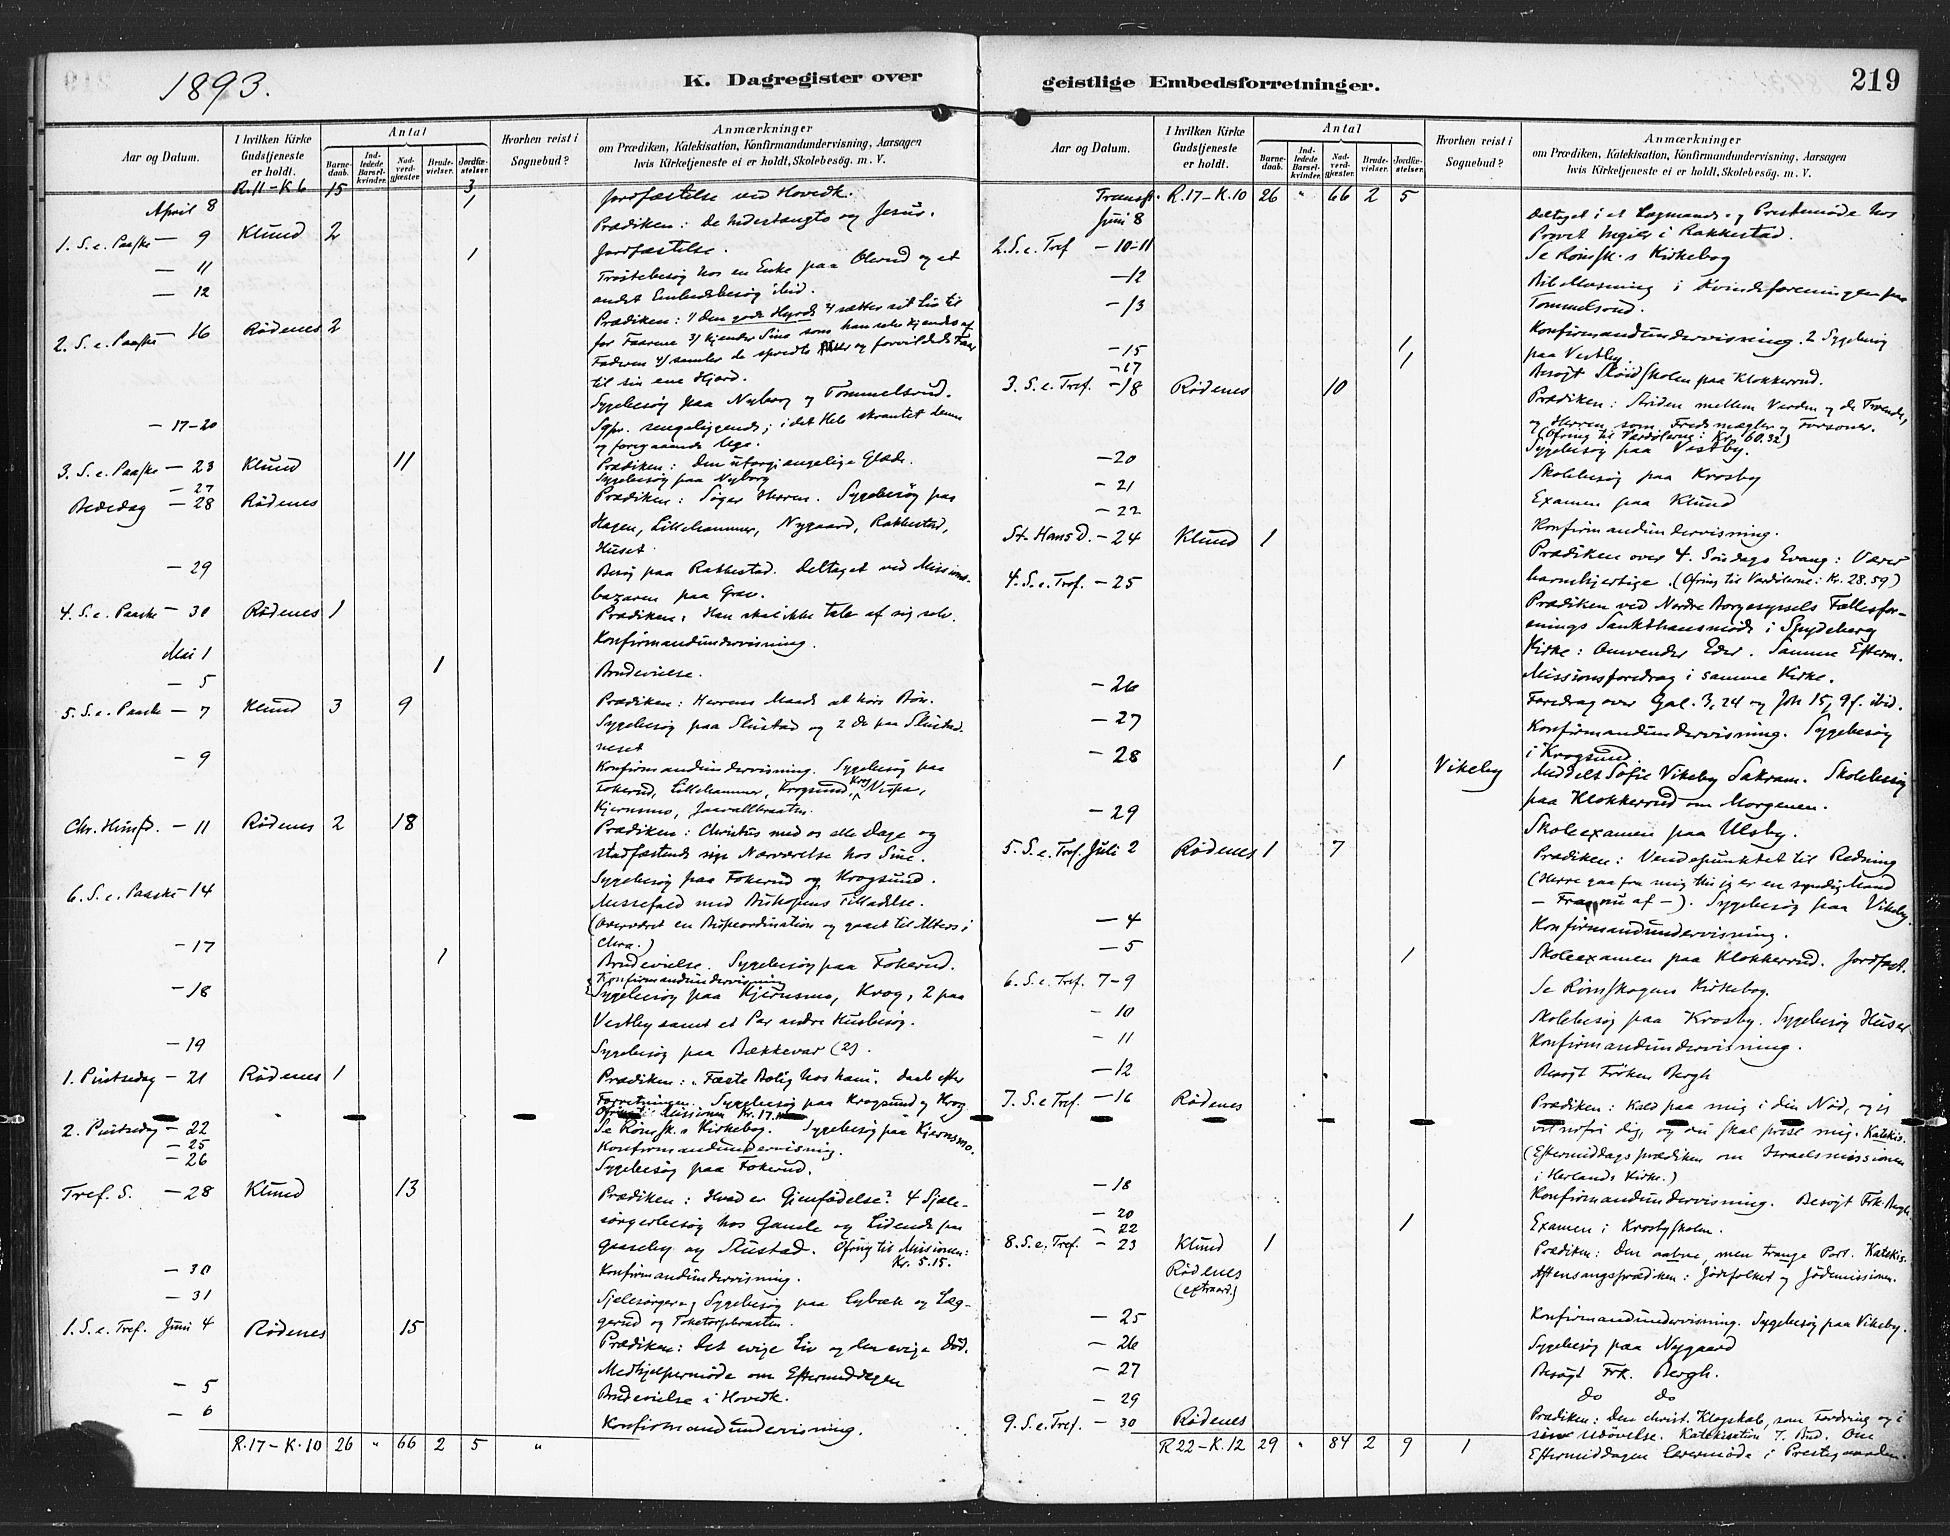 1893.
K. Dagregister over
Aar og Datum.
I hvilken Kirke Gudstjeneste er holdt.
Antal
Barnedaab.
Indledede Barselkvinder.
Nadverdgjæster
Brudevielser.
Jordfæstelser
Hvorhen reist i Sognebud?
Anmærkninger
om Prædiken, Katekisation, Konfirmandundervisning, Aarsagen
hvis Kirketjeneste ei er holdt, Skolebesøg. m. V.
R. 11 - K 6 15 3
April 8 1 Jordfæstelse ved Hovedk.
1. S. e. Paaske — 9 Klund 2 Prædiken: de og Jesus.
— 11 1 Jordfæstelse.
— 12 Trøstebesøg hos en Enke paa Olerud og et
andet Embedsbesøg ibid.
2. S. e. Paaske — 16 Rødenes 2 Prædiken: 1/ den gode Hyrde 2/ sætter sit Liv til
for Faarene 3/ kjender Sine som han selv kjendes af
Faderen 4/ samler de spredte og forvildede Faar
til sin ene Hjord.
— 17-20 Sygebesøg paa Nyborg og Tommelsrud.
Sgpr. sengeliggende; i det Hele skrantet denne
og foregaaende Uge.
3. S. e. Paaske — 23 Klund 11 Prædiken: Den uforgjængelige Glæde.
— 27 Sygebesøg paa Nyborg
Bededag — 28 Rødenes Prædiken: Søger Herren. Sygebesøg paa
Hagen, Lillehammer, Nygaard, Rakkestad,
Huset.
— 29 Besøg paa Rakkestad. Deltaget ved Missions-
bazaren paa Grav.
4. S. e. Paaske — 30 Rødenes 1 Prædiken: Han skal ikke tale af sig selv.
Mai 1 Konfirmandundervisning.
— 5 1 Brudevielse.
5. S. e. Paaske — 7 Klund 3 9 Prædiken: Herrens Maade at høre Bøn.
Sygebesøg paa Slustad og 2 do paa Slustad-
neset
— 9 Konfirmandundervisning. Sygebesøg paa
Fokerud, Lillehammer, Krogsund, Krog Nespa,
Kjernsmo, Jaavallbraaten.
Chr. Himfd. — 11 Rødenes 2 18 Prædiken: Christus med os alle Dage og
stadfæstende sin Nærværelse hos Sine.
Sygebesøg paa Fokerud og Krogsund.
6. S. e. Paaske — 14 Messefald med Biskopens Tilladelse.
(Overværet en Bispeordination og gaaet til Alters i
Chra.)
— 17 1 Brudevielse. Sygebesøg paa Fokerud.
Konfirmandundervisning
— 18 Sygebesøg paa Kjernsmo, Krog, 2 paa
Vestby samt et Par andre Husbesøg.
— 19 Sygebesøg paa Bækkevar (2).
1. Pintsedag — 21 Rødenes 1 Prædiken: "Fæste Bolig hos ham". Daab efter
Forretningen. Sygebesøg paa Krogsund og Krog
Ofring til Missionen Kr. 17.
2. Pintsedag — 22 Se Rømsk.s Kirkebog. Sygebesøg paa Kjernsmo.
— 25 Konfirmandundervisning.
— 26 Sygebesøg paa Fokerud.
Tref. S. — 28 Klund 13 Prædiken: Hvad er Gjenfødelse? 4 Sjæle-
sørgerbesøg hos Gamle og Lidende paa
Gaaseby og Slustad. Ofring til Missionen:
Kr. 5.15.
— 30 Konfirmandundervisning.
— 31 Sjælesørger og Sygebesøg paa Lybæk og Læg-
gerud og Toketorpbraaten.
1. S. e. Tref. Juni 4 Rødenes 15 Prædiken: Det evige Liv og den evige Død.
Medhjelpermøde om Eftermiddagen
— 5 Brudevielse i Hovedk.
— 6 Konfirmandundervisning.
R. 17 - K. 10 26 " 66 2 5 "
geistlige Embedsforretninger.
219
Aar og Datum.
I hvilken Kirke Gudstjeneste er holdt.
Antal
Barnedaab.
Indledede Barselkvinder.
Nadverdgjæster.
Brudevielser.
Jordfæstelser.
Hvorhen reist i Sognebud?
Anmærkninger
om Prædiken, Katekisation, Konfirmandundervisning, Aarsagen
hvis Kirketjeneste ei er holdt, Skolebesøg. m. V.
Transp. R. 17 - K. 10 26 " 66 2 5
Juni 8 Deltaget i et Lagmands- og Prestemøde hos
Provst Ingier i Rakkestad.
2. S. e. Tref — 10-11 Se Rømsk.s Kirkebog
— 12 Bibellæsning i Kvindeforeningen paa
Tommelsrud.
— 13 Konfirmandundervisning. 2 Sygebesøg
paa Vestby.
— 15 1
— 17 1 Besøgt Skolen paa Klokkerrud.
3. S. e. Tref. — 18 Rødenes 10 Prædiken: Striden mellem Verden og de Troende,
og Herren som Fredsmægler og Forsoner.
(Ofring til Vardølerne: Kr. 60.32)
— 20 Sygebesøg paa Vestby.
— 21 Skolebesøg paa Krosby
— 22 Examen paa Klund
Konfirmandundervisning.
St. Hansd. — 24 Klund 1 Prædiken over 4. Søndags Evang: Værer
barmhjertige. (Ofring til Vardølerne: Kr. 28.59)
4. S. e. Tref. — 25 Prædiken ved Nordre Borgesyssels Fællesfor-
enings Sankthansmøde i Spydeberg
Kirke: Omvender Eder. Samme Efterm.
Missionsforedrag i samme Kirke.
— 26 Foredrag over Gal. 3, 24 og Joh 15, 9 f. ibid.
— 27 Konfirmandundervisning. Sygebesøg
i Krogsund.
— 28 1 Vikeby Meddelt Sofie Vikeby Sakram. Skolebesøg
paa Klokkerrud om Morgenen.
— 29 Skoleexamen paa Ulsby.
5. S. e. Tref. Juli 2 Rødenes 1 7 Prædiken: Vendepunktet til Redning
(Herre gaa fra mig thi jeg er en syndig Mand
— Fra nu af —). Sygebesøg paa Vikeby.
— 4 Konfirmandundervisning.
— 5 1 Skoleexamen paa Klokkerrud. Jordfæst.
6. S. e. Tref. 7-9 Se Rømskogens Kirkebog.
— 10 Skolebesøg paa Krosby. Sygebesøg Huset
— 11 Konfirmandundervisning.
— 12 Besøgt Frøken Bergh
7. S. e Tref. — 16 Rødenes Prædiken: Kald paa mig i din Nød, og jeg
vil udfri dig, og du skal prise mig. Katekis.
(Eftermiddagsprædiken om Israelsmissionen
i Herlands Kirke.)
— 18 Konfirmandundervisning. Besøgt Frk. Bergh.
— 20 Examen i Krosby skolen.
— 22 1
8. S. e. Tref. — 23 Klund 1 Prædiken: Den aabne, men trange Port. Katekis.
Rødenes Aftensangsprædiken: Jødefolket og Jødemissionen.
(extraord.)
— 25 Konfirmandundervisning. Sygebesøg paa Vikeby.
— 26 Sygebesøg paa Nygaard
— 27 Besøgt Frk. Bergh.
— 29 do do
9. S. e. Tref. — 30 Rødenes Prædiken: Den christ. Klogskab, som Fordring og i
sin Udøvelse. Katekisation 7. Bud. Om
R 22 - K. 12 29 " 84 2 9 1 Eftermiddagen Lærermøde i Prestegaarden.